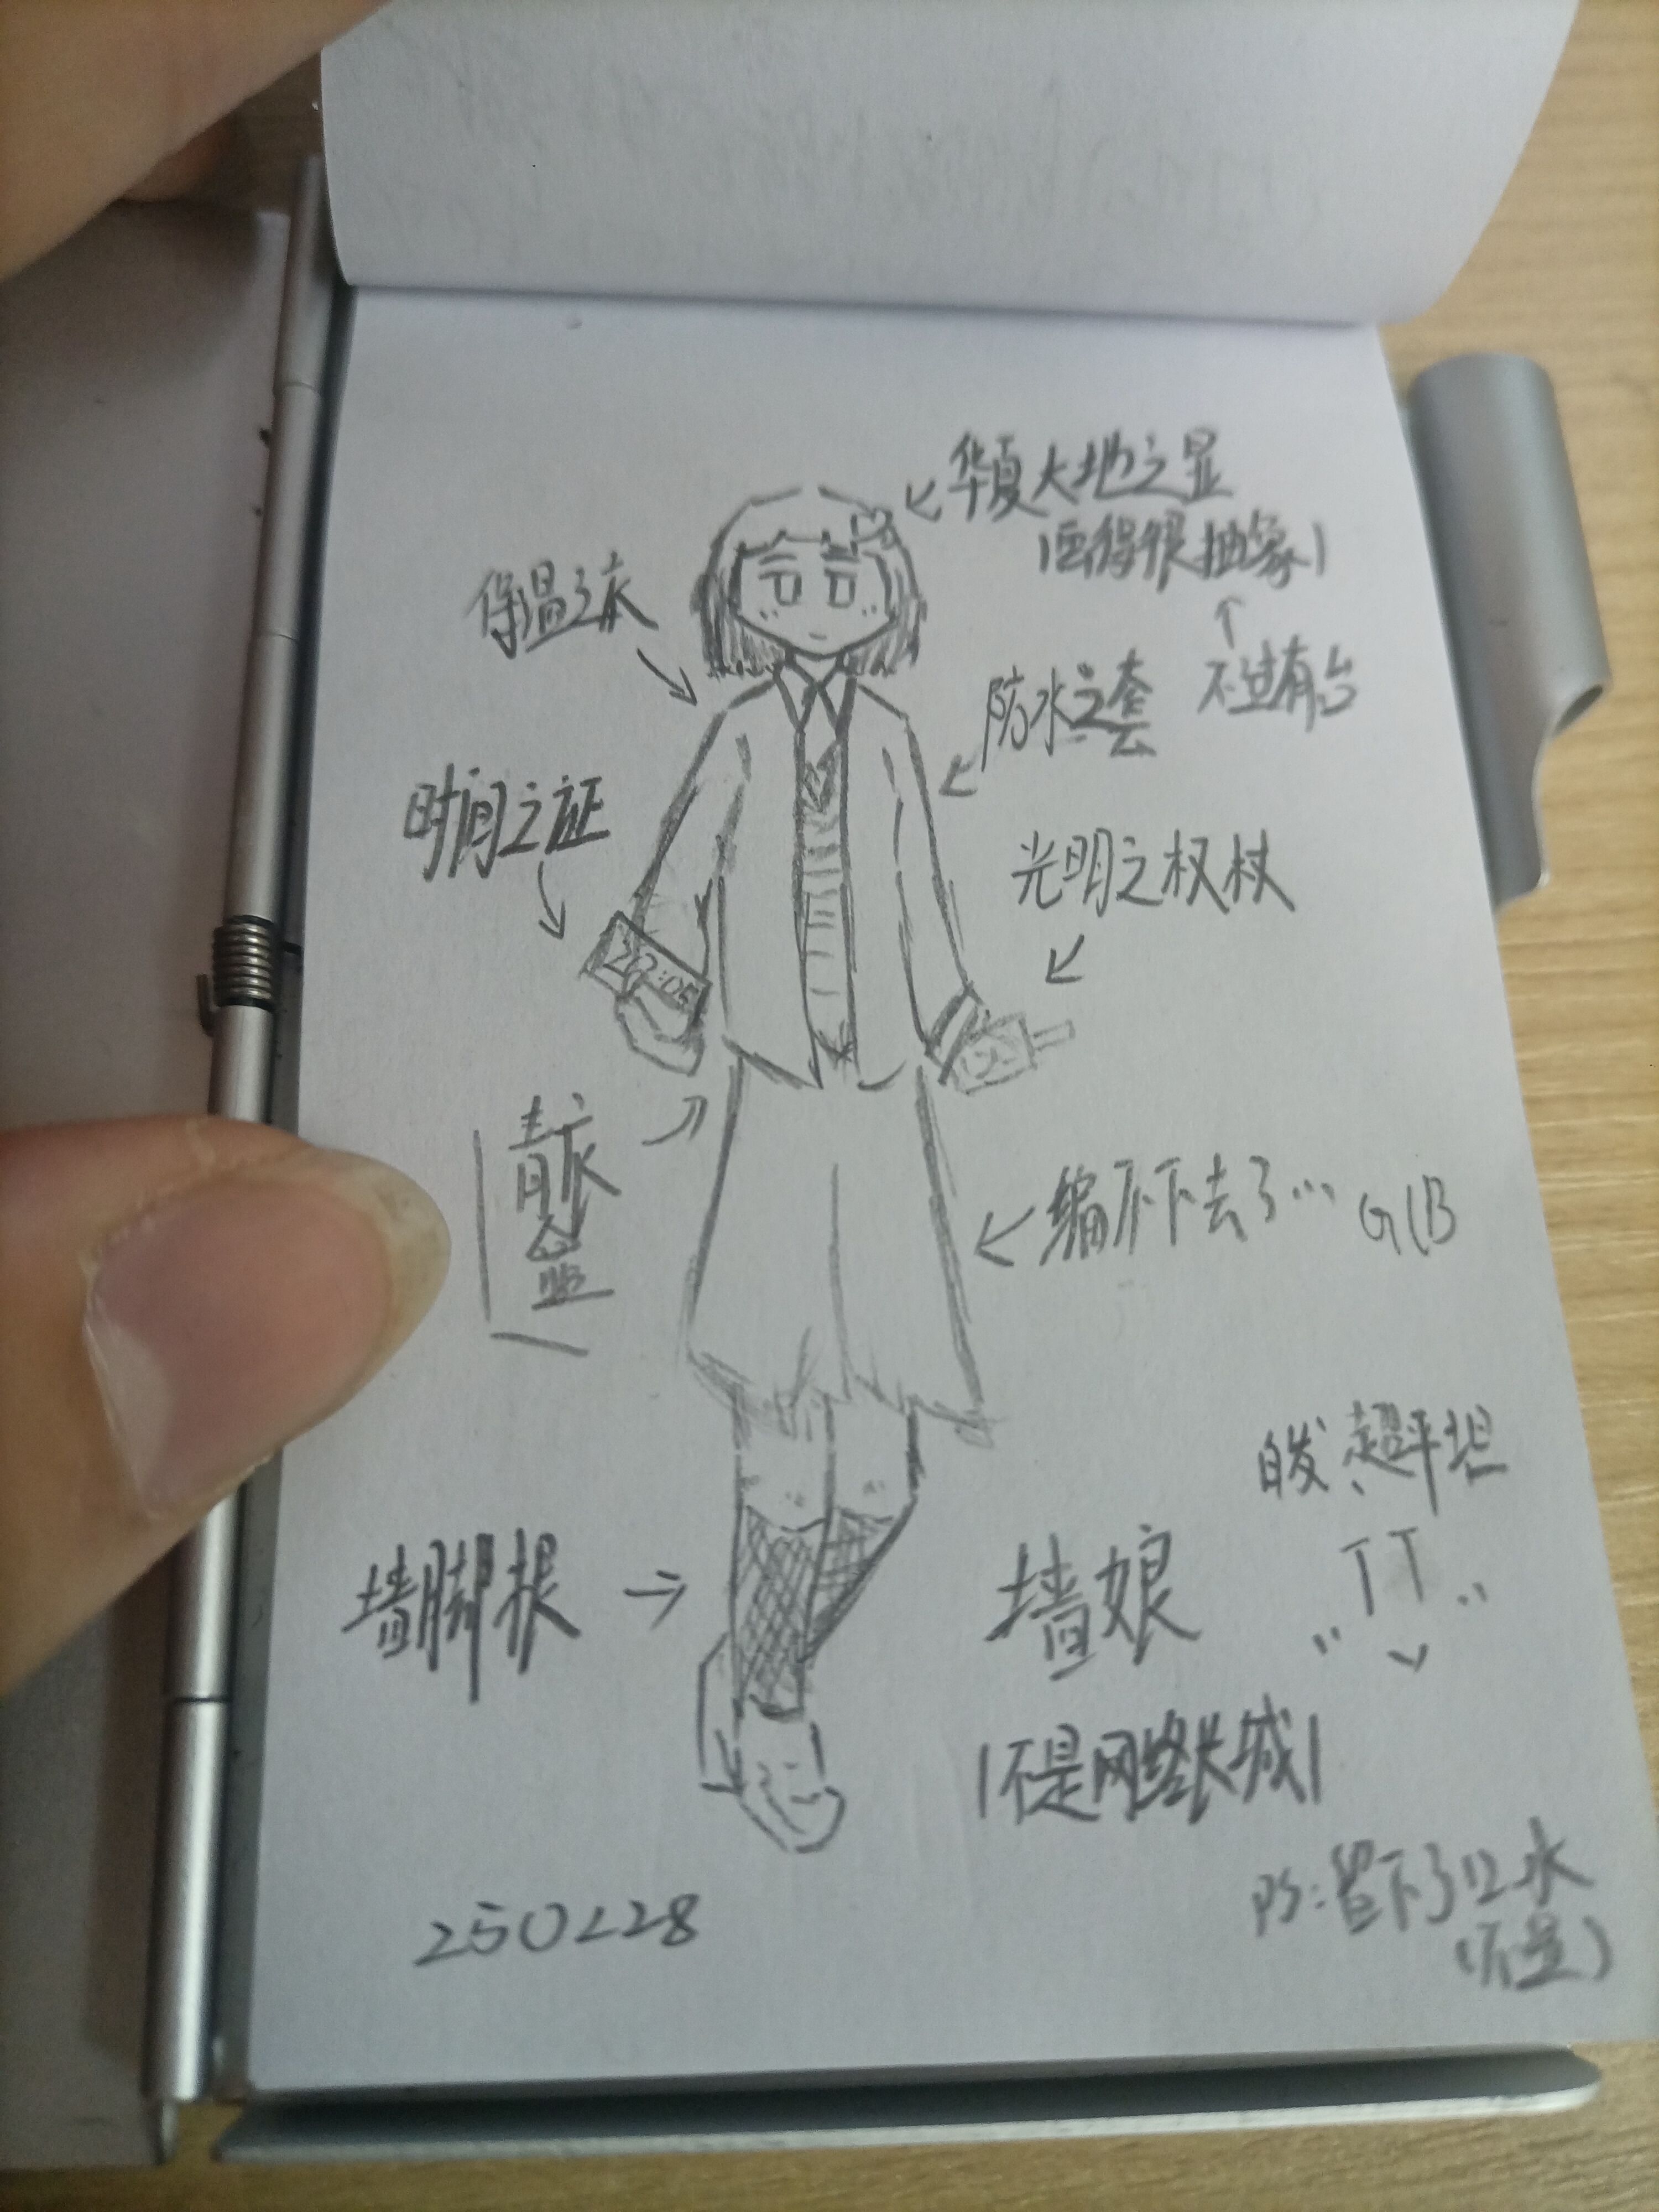 华夏大地之显
(画得很抽象)
不过有台
保温之衣
防水之套
时间之证
光明之权杖
青衣
编不下去了… G(B
白发、超平坦
墙脚根
墙娘
(不是网络长城)
PS:留下了口水
(不是)
250228